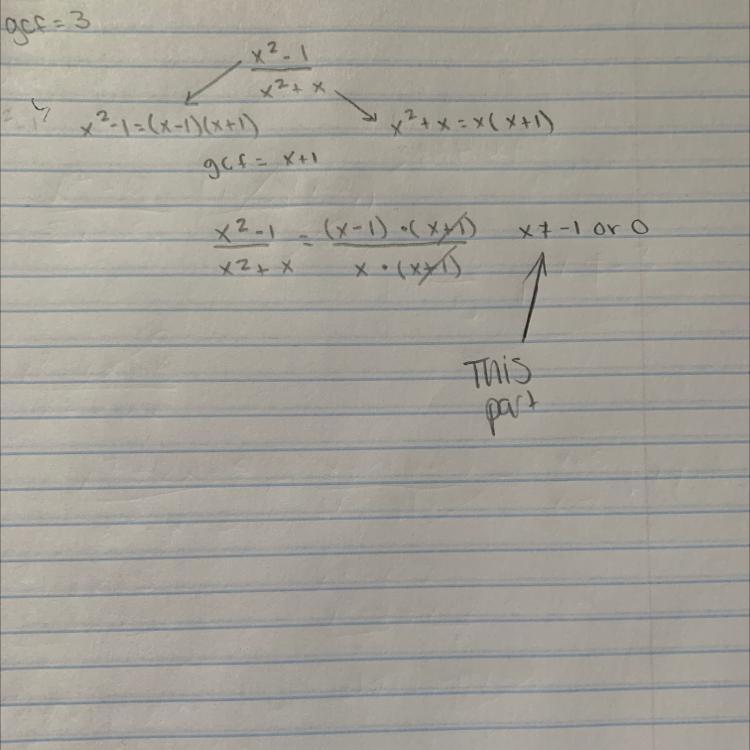 gcf = 3
x² - 1
x² + x
x² - 1 = (x-1)(x+1)
x² + x = x(x+1)
gcf = x+1
x² - 1 = (x-1) • (x+1) x ≠ -1 or 0
x² + x x • (x+1)
This
part